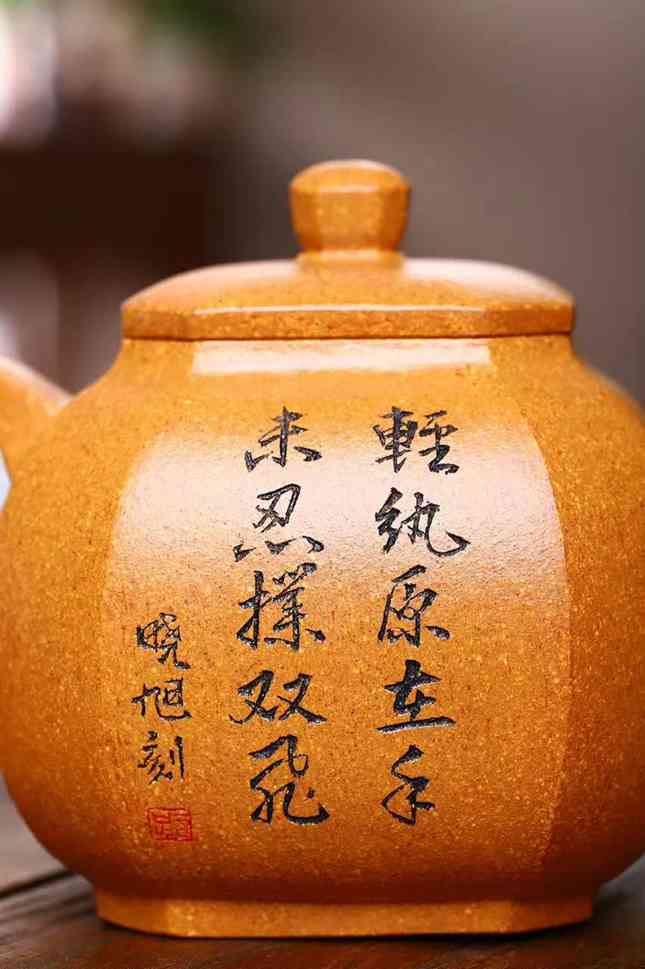 輕紈原在手
未忍撲双飛
晓旭刻